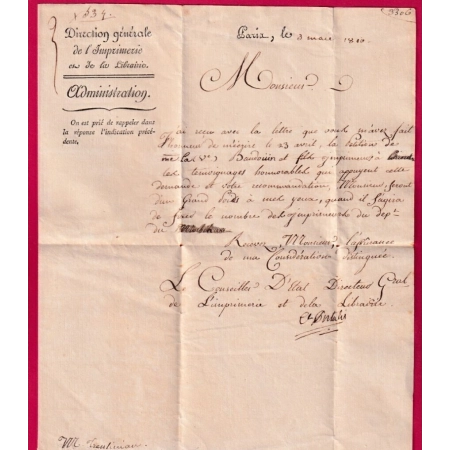 534
Direction générale
de l'Imprimerie
et de la Librairie.
Administration.
On est prié de rappeler dans
la réponse l'indication précé-
dente.
Paris, le 3 mai 1810.
Monsieur
J'ai reçu avec la lettre que vous m'avez fait
l'honneur de m'écrire le 23 avril, la Pétition de
Me la Ve Baudouin et fils imprimeurs à
les témoignages honorables que appuyent cette
demande et votre recommandation, Monsieur, seront
d'un Grand Poids à mes yeux, quand il s'agira
de fixer le nombre des Imprimeurs du Dept
du
Recevez, Monsieur, l'assurance
de ma Considération distinguée.
Le Conseiller D'Etat Directeur Gral
de L'imprimerie et de la Librairie.
M.